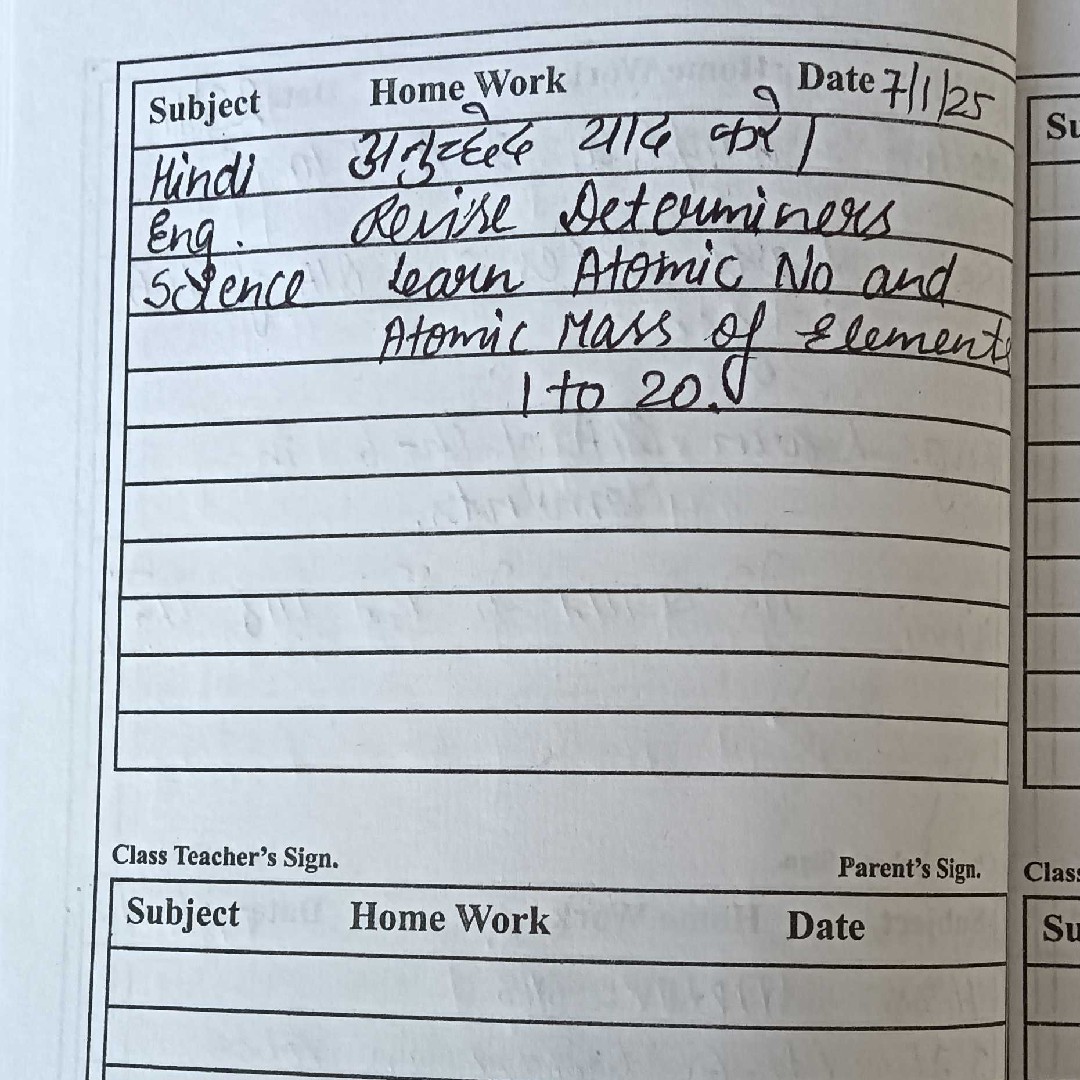 Subject Home Work Date 7/1/25
Hindi अनुच्छेद याद करे।
Eng. Revise Determiners
Science learn Atomic No and
Atomic Mass of Elements
1 to 20.
Class Teacher's Sign. Parent's Sign.
Subject Home Work Date
Su
Class
Su